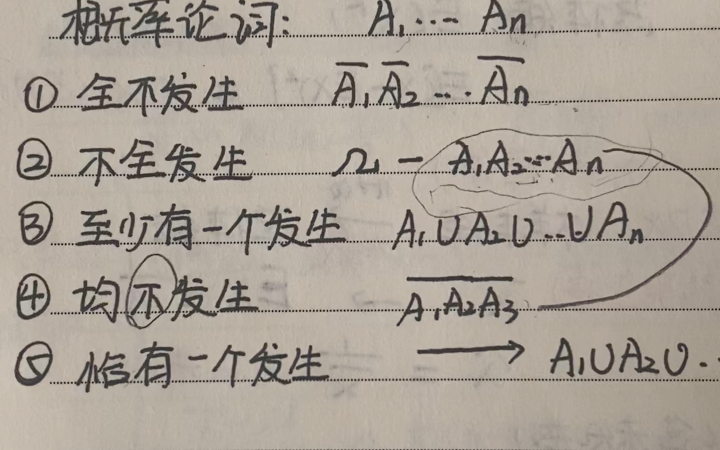 概率论词: A₁ ⋯ Aₙ
① 全不发生 A̅₁ A̅₂ ⋯ A̅ₙ
② 不全发生 Ω − A₁A₂⋯Aₙ
③ 至少有一个发生 A₁∪A₂∪⋯∪Aₙ
④ 均不发生 \overline{A₁A₂A₃}
⑤ 恰有一个发生 → A₁∪A₂∪⋯